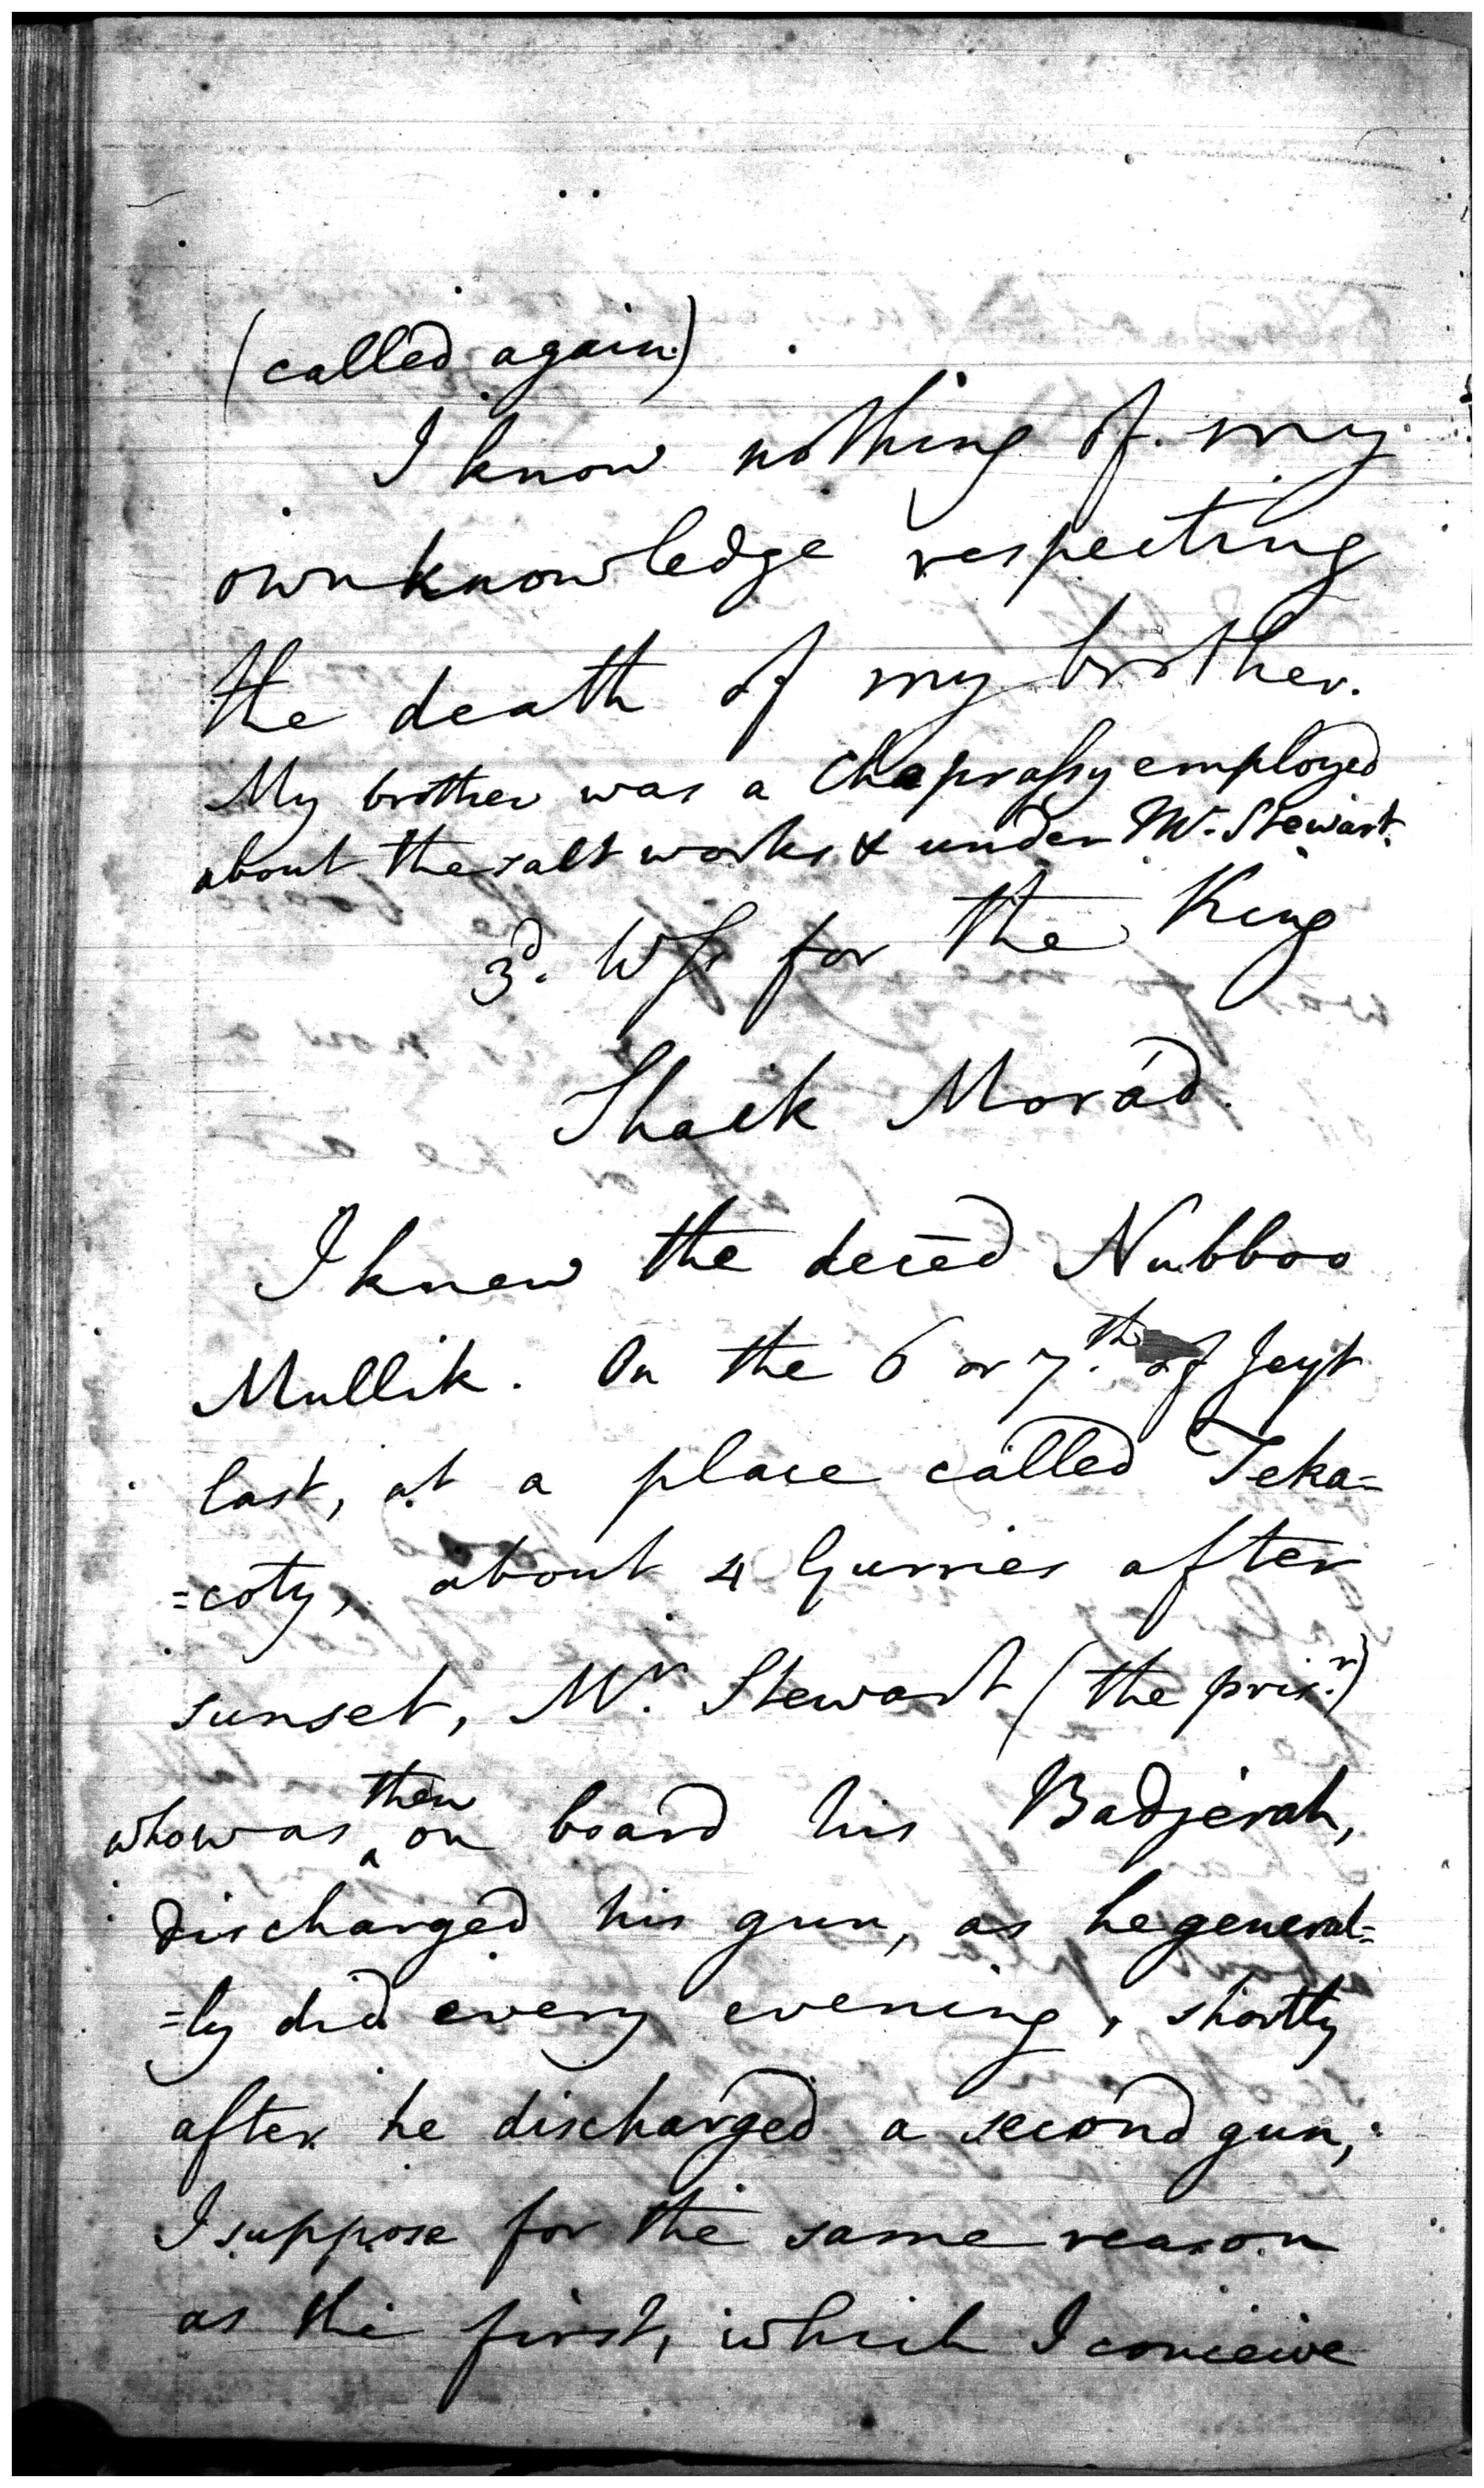 (called again.)
I know nothing of my
own knowledge respecting
the death of my brother.
My brother was a Chaprassy employed
about the salt works & under Mr. Stewart.
3d. Wss for the King
Shaek Morad.
I knew the deced Nubboo
Mullik. On the 6 or 7.th of Jeyt
last, at a place called Teka=
=coty, about 4 Gurries after
sunset, Mr. Stewart (the prisr.)
who was then on board his Badjerah,
discharged his gun, as he general=
=ly did every evening, shortly
after he discharged a second gun,
I suppose for the same reason
as the first, which I conceive